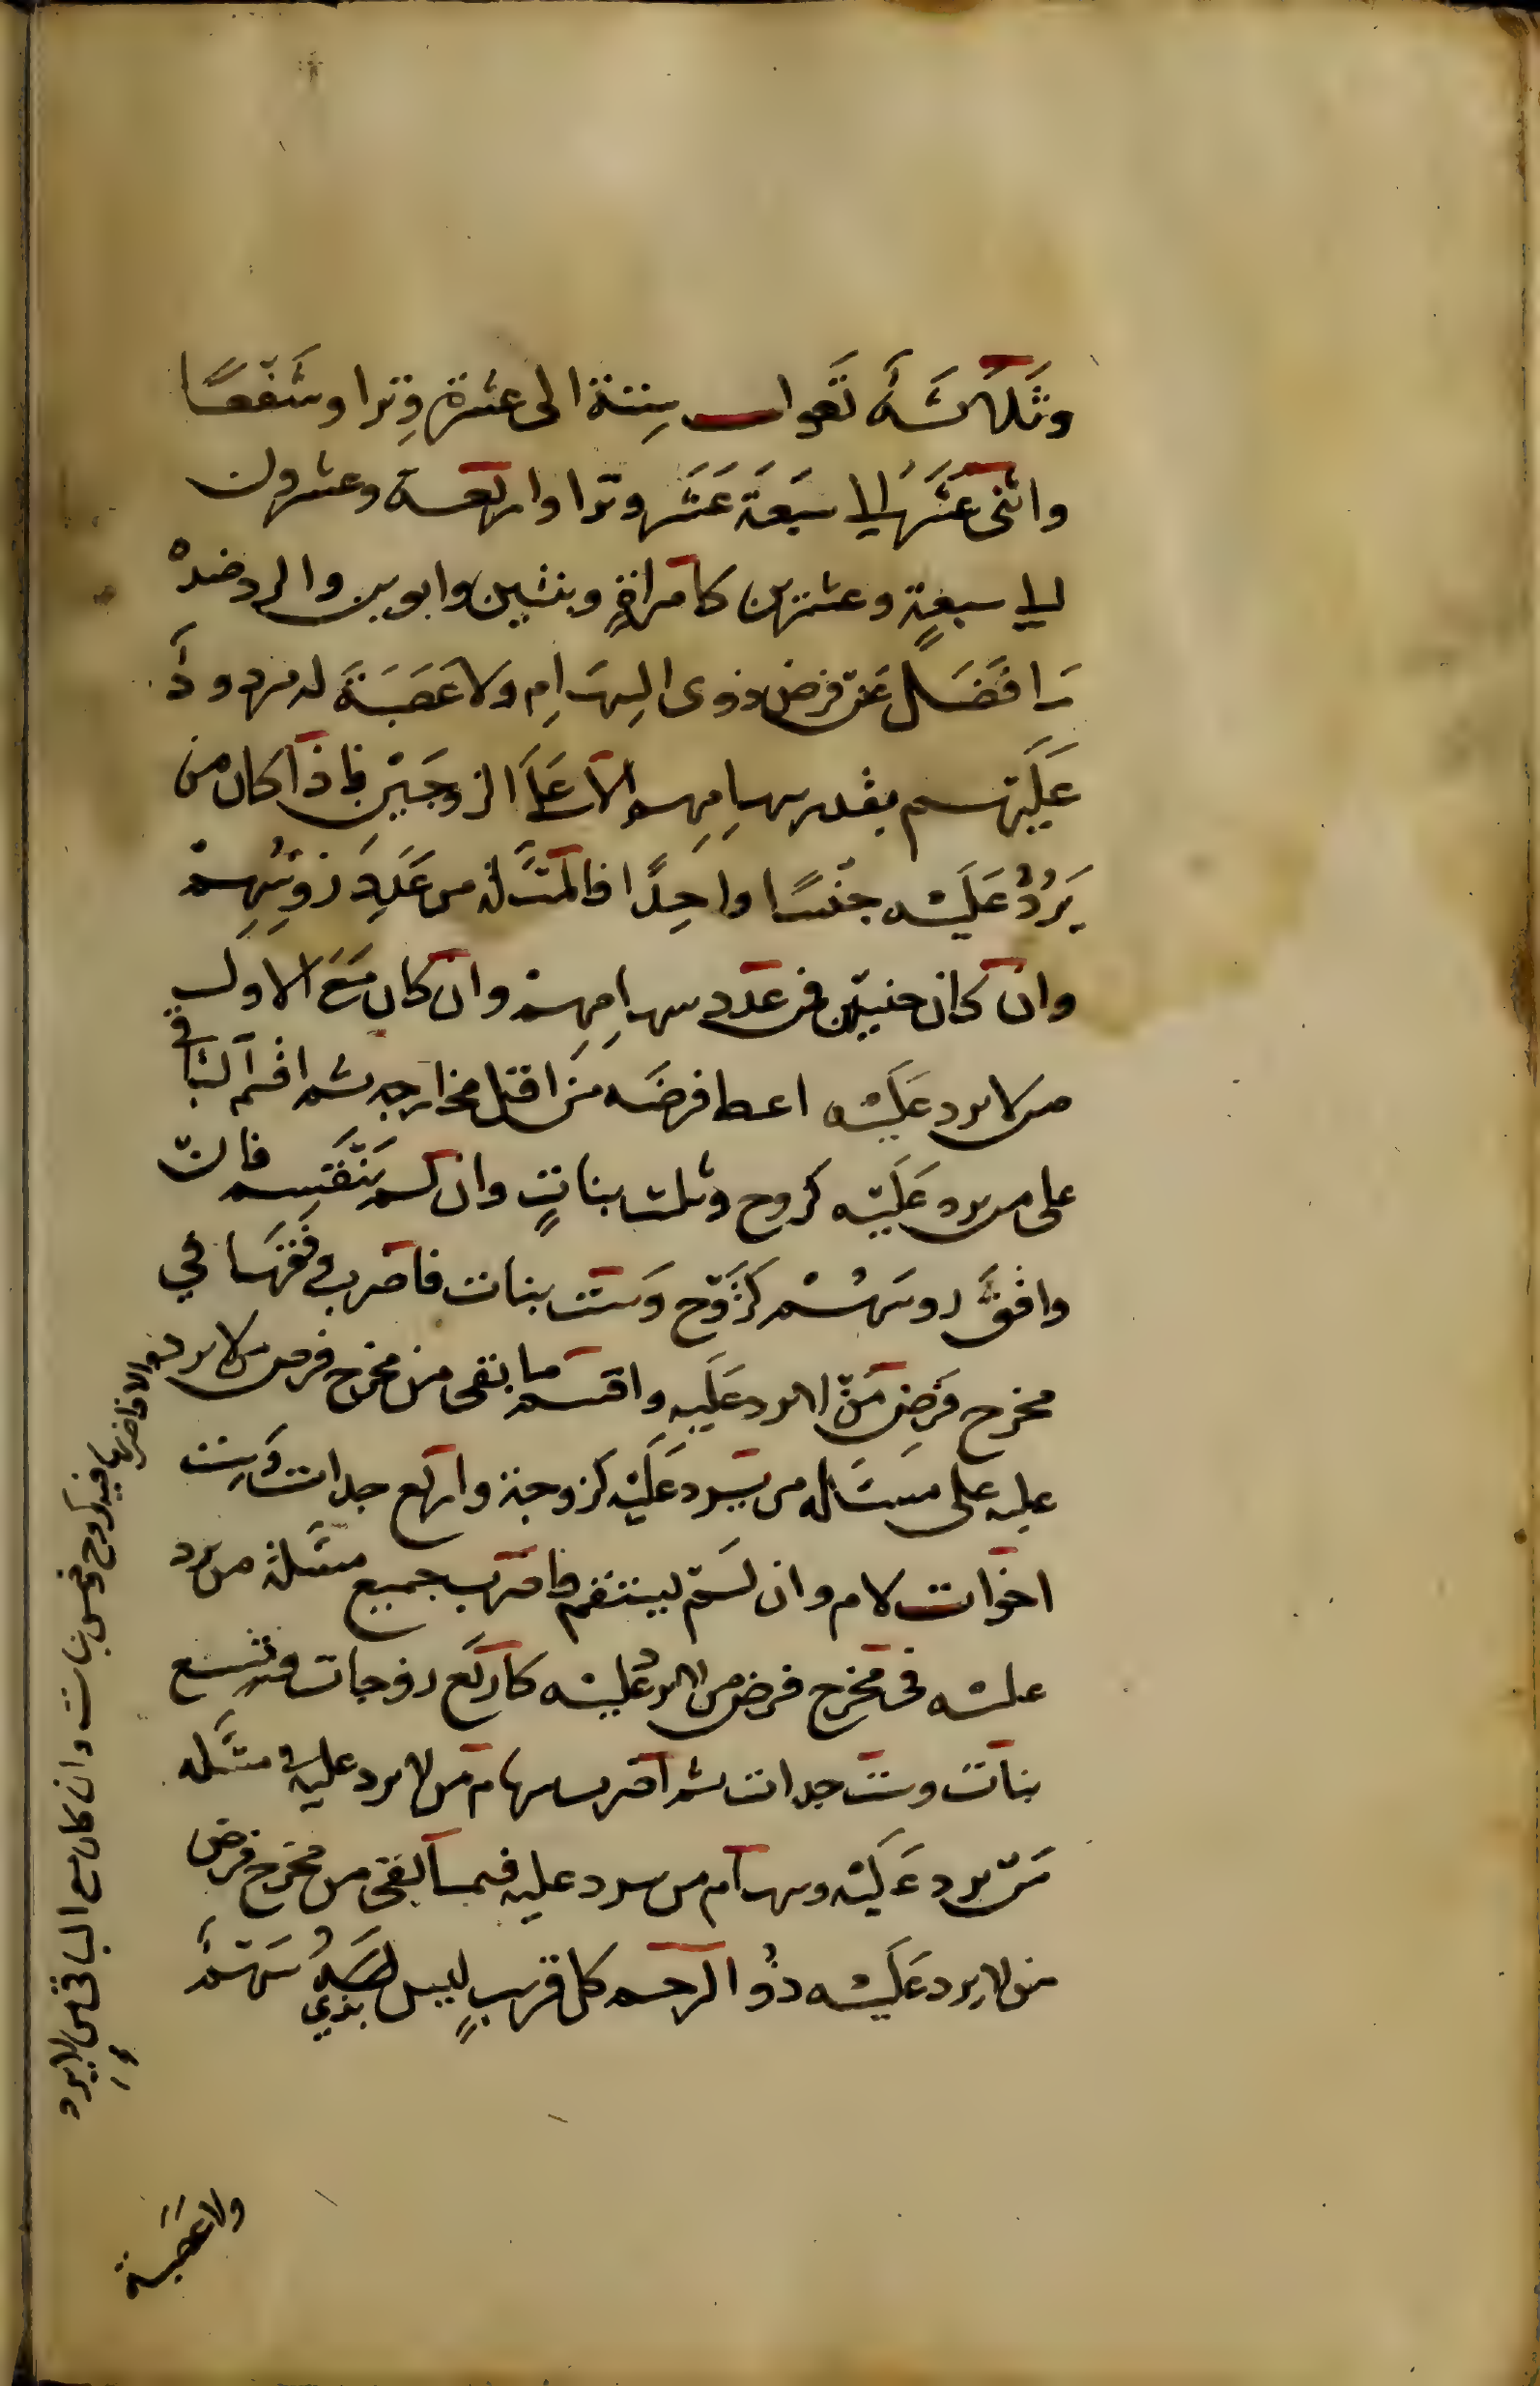 وثلاثة تعول ستة الى عشرة وترا وشفعا
واثنى عشر الى سبعة عشر وترا واربعة وعشرون
الى سبعة وعشرين كامراة وبنتين وابوين والرد ضده
ما فضل عن فرض ذوى السهام ولا عصبة له مردود
عليهم بقدر سهامهم الا على الزوجين فاذا كان من
يرد عليه جنسا واحدا فالمسئلة من عدد رؤسهم
وان كان جنسين فمن عدد سهامهم وان كان مع الاول
من لا يرد عليه اعط فرضه من اقل مخارجه ثم اقسم الباقى
على من يرد عليه كزوج وثلث بنات وان لم ينقسم فان
وافق روسهم كزوج وست بنات فاضرب وفقها في
مخرج فرض من لا يرد عليه واقسم ما بقى من مخرج فرض من لا يرد
عليه على مسئلة من يرد عليه كزوجة واربع جدات وست
اخوات لام وان لم يستقم فاضرب جميع مسئلة من يرد
عليه فى مخرج فرض من لا يرد عليه كاربع زوجات وتسع
بنات وست جدات ثم اضرب سهام من لا يرد عليه فى مسئلة
من يرد عليه وسهام من يرد عليه فيما بقى من مخرج فرض
من لا يرد عليه ذو الرحم كل قريب ليس بذي سهم
والا فاضربها فيه كزوج وخمس بنات وان كان مع الباقى من لا يرد
ولا عصبة